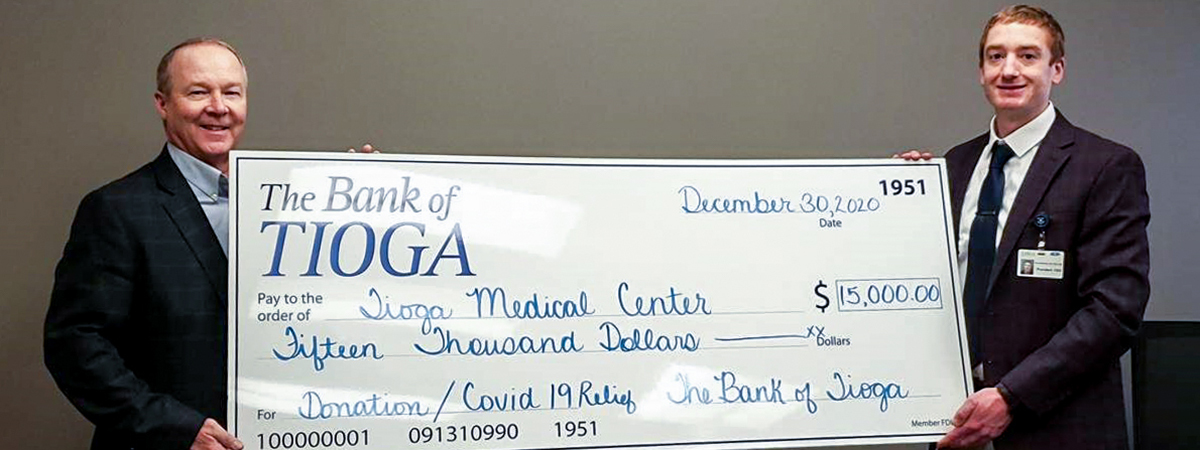 The Bank of
TIOGA
1951
December 30, 2020
Date
Pay to the
order of
Tioga Medical Center
$ 15,000.00
Fifteen Thousand Dollars xx
Dollars
For Donation / Covid 19 Relief The Bank of Tioga
100000001 091310990 1951
Member